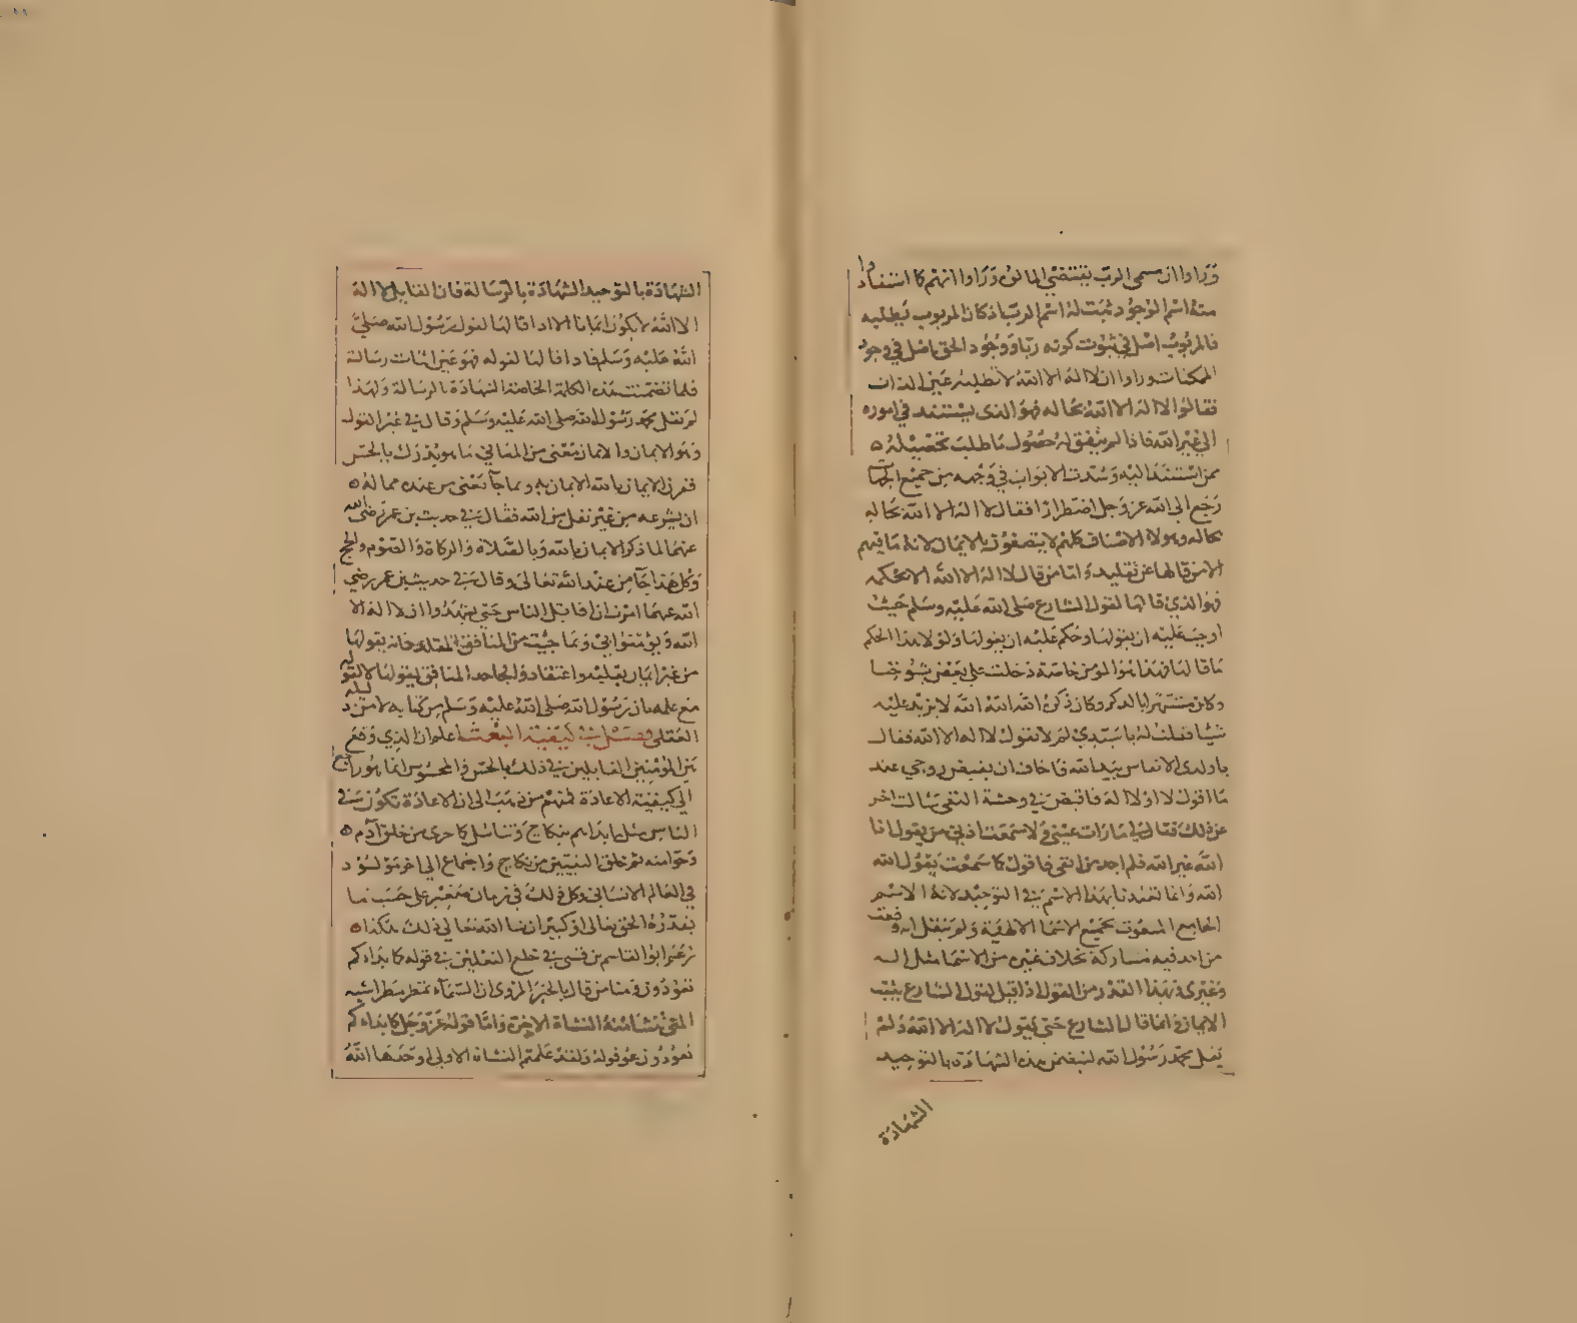 ورأوا ان مسمى الرب يقتضي المالوه ورأوا انهم كما استفادوا
منه اسم الوجود ثبت له اسم الرب اذ كان المربوب يطلبه
فالمربوب اصل في ثبوت كونه ربا ووجود الحق اصل في وجود
الممكنات وراوا ان لا اله الا الله لا تطلبه عين الذات
فقالوا لا اله الا الله بحاله فهو الذي يستند في اموره
الى غير الله فاذا لم يتفق له حصول ما طلب تحصيله
ممن استند اليه وسدت الابواب في وجهه من جميع الجهات
رجع الى الله عز وجل اضطرارا فقال لا اله الا الله بحاله
بحاله وهولاء الاصناف كلهم لا يتصفون بالايمان لانه ما فيهم
الا من قالها عن تقليد واما من قال لا اله الا الله الا بحكمه
فهو الذي قالها لقول الشارع صلى الله عليه وسلم حيث
اوجب عليه ان يقولها وحكم عليه ان يقولها ولولا هذا الحكم
ما قالها فهذا هو المومن خاصة دخلت على بعض شيوخنا
وكان مشتهرا بالذكر وكان ذكره الله الله الله لا يزيد عليه
شيئا فقلت له يا سيدي لم لا تقول لا اله الا الله فقال
يا ولدي الانفاس بيد الله فاخاف ان يقبض روحي عند
ما اقول لا او لا اله فاقبض في وحشة النفي وسالت اخر
عن ذلك فقال لي ما رات عيني ولا سمعت اذني من يقول انا
الله غير الله فلم اجد من انفي فاقول كما سمعت يقول الله
الله وانما تعبدنا بهذا الاسم في التوحيد لانه الاسم
الجامع المنعوت بجميع الاسما الالهية ولم ينقل انه وقعت
من احد فيه مشاركة بخلاف غيره من الاسما مثل اله
وغيره فبهذا القدر من القول اذا قيل لقول الشارع يثبت
الايمان وانما قال الشارع حتى يقول لا اله الا الله ولم
يقل محمد رسول الله لتضمن هذه الشهادة بالتوحيد
الشهادة
الشهادة بالتوحيد الشهادة بالرسالة فان القايل لا اله
الا الله لا يكون ايمانا الا اذا قالها لقول رسول الله صلى
الله عليه وسلم فاذا قالها لقوله فهو عين اثبات رسالته
فلما تضمنت هذه الكلمة الخاصة الشهادة بالرسالة ولهذا
لم تقل محمد رسول الله صلى الله عليه وسلم وقال في غير القول
وهو الايمان والايمان معنى من المعاني ما هو يدرك بالحس
فقرن الايمان بالله الايمان به وبما جآ يعني من عنده مما له
ان يشرعه من غير نقل من الله فقال في حديث بن عمر رضي الله
عنهما لما ذكر الايمان بالله وبالصلاة والزكاة والصوم والحج
وكل هذا جآ من عند الله تعالى وقال في حديث بن عمر رضي
الله عنهما امرت ان اقاتل الناس حتى يشهدوا ان لا اله الا
الله ويؤمنوا بي وبما جيت من المنافق المقلد فانه يقولها
من غير ايمان بقلبه واعتقاد والجاحد المنافق يقولها لا لقوله
مع علمه بان رسول الله صلى الله عليه وسلم من كتابه لا من دليله
العقلي فصل في كيفية البعث اعلم ان الذي وقع
بين المومنين القايلين في ذلك بالحس والمحسوس انما هو راجع
الى كيفية الاعادة فمنهم من ذهب الى ان الاعادة تكون في
الناس مثل ما بداهم بنكاح وتناسل كما جرى من خلق آدم
وحوا منه ثم خلق البنين من نكاح واجتماع الى اخر مولود
في العالم الانساني وكل ذلك في زمان صغير على حسب ما
يقدره الحق تعالى او كبير ان شا الله تعالى ذلك هكذا
زعم ابو القاسم بن قسي في خلع النعلين في قوله كما بداكم
تعودون ومنا من قال بالخبر المروي ان السمآء تمطر مطرا شبه
المني تنشا منه النشاة الاخرة واما قوله عز وجل كما بداكم
تعودون هو قوله ولقد علمتم النشاة الاولى اوجدها الله